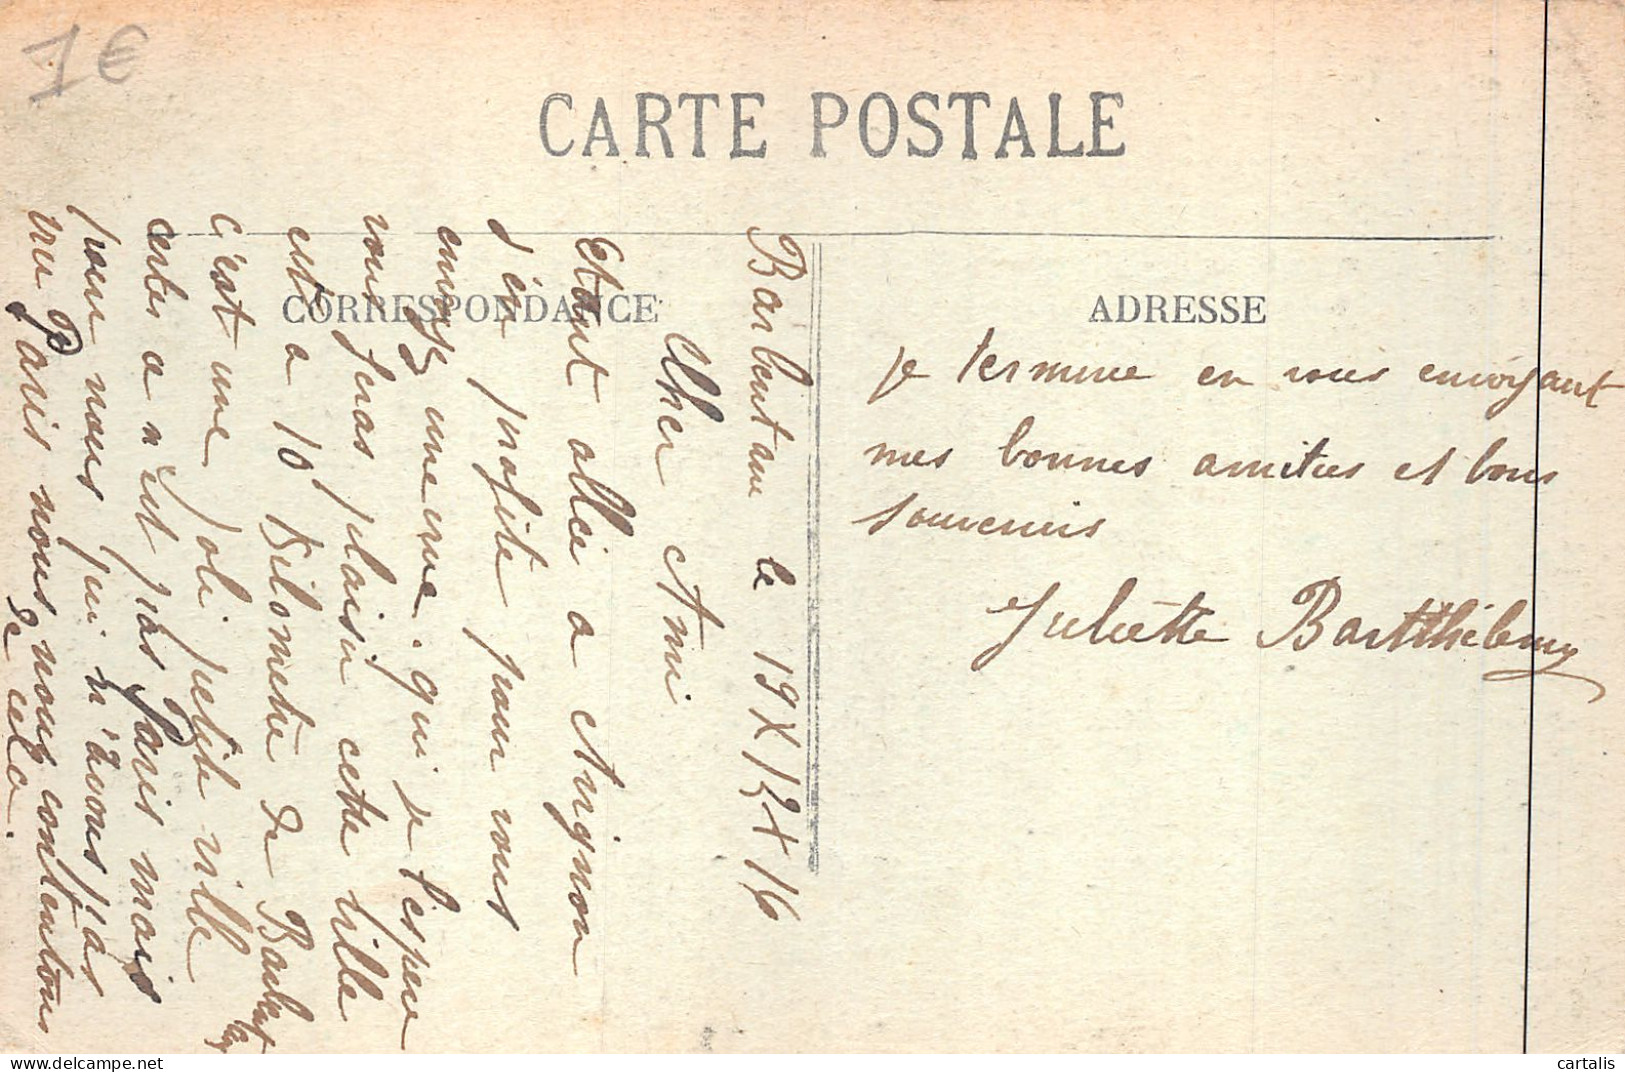 1€
CARTE POSTALE
CORRESPONDANCE
ADRESSE
Barbentane le 19 X 16
Cher Ami
Etant allée a Avignon
j'en profite pour vous
envoyez une vue. qui je l'espere
vous feras plaisir cette ville
est a 10 Kilometre de Barbent
c'est une joli petite ville
certes ce n'est pas Paris mais
pour nous qui n'avons pas
vu Paris nous nous contentons
de cela.
je termine en vous envoyant
mes bonnes amities et bons
souvenirs
Juliette Barthélemy
cartalis